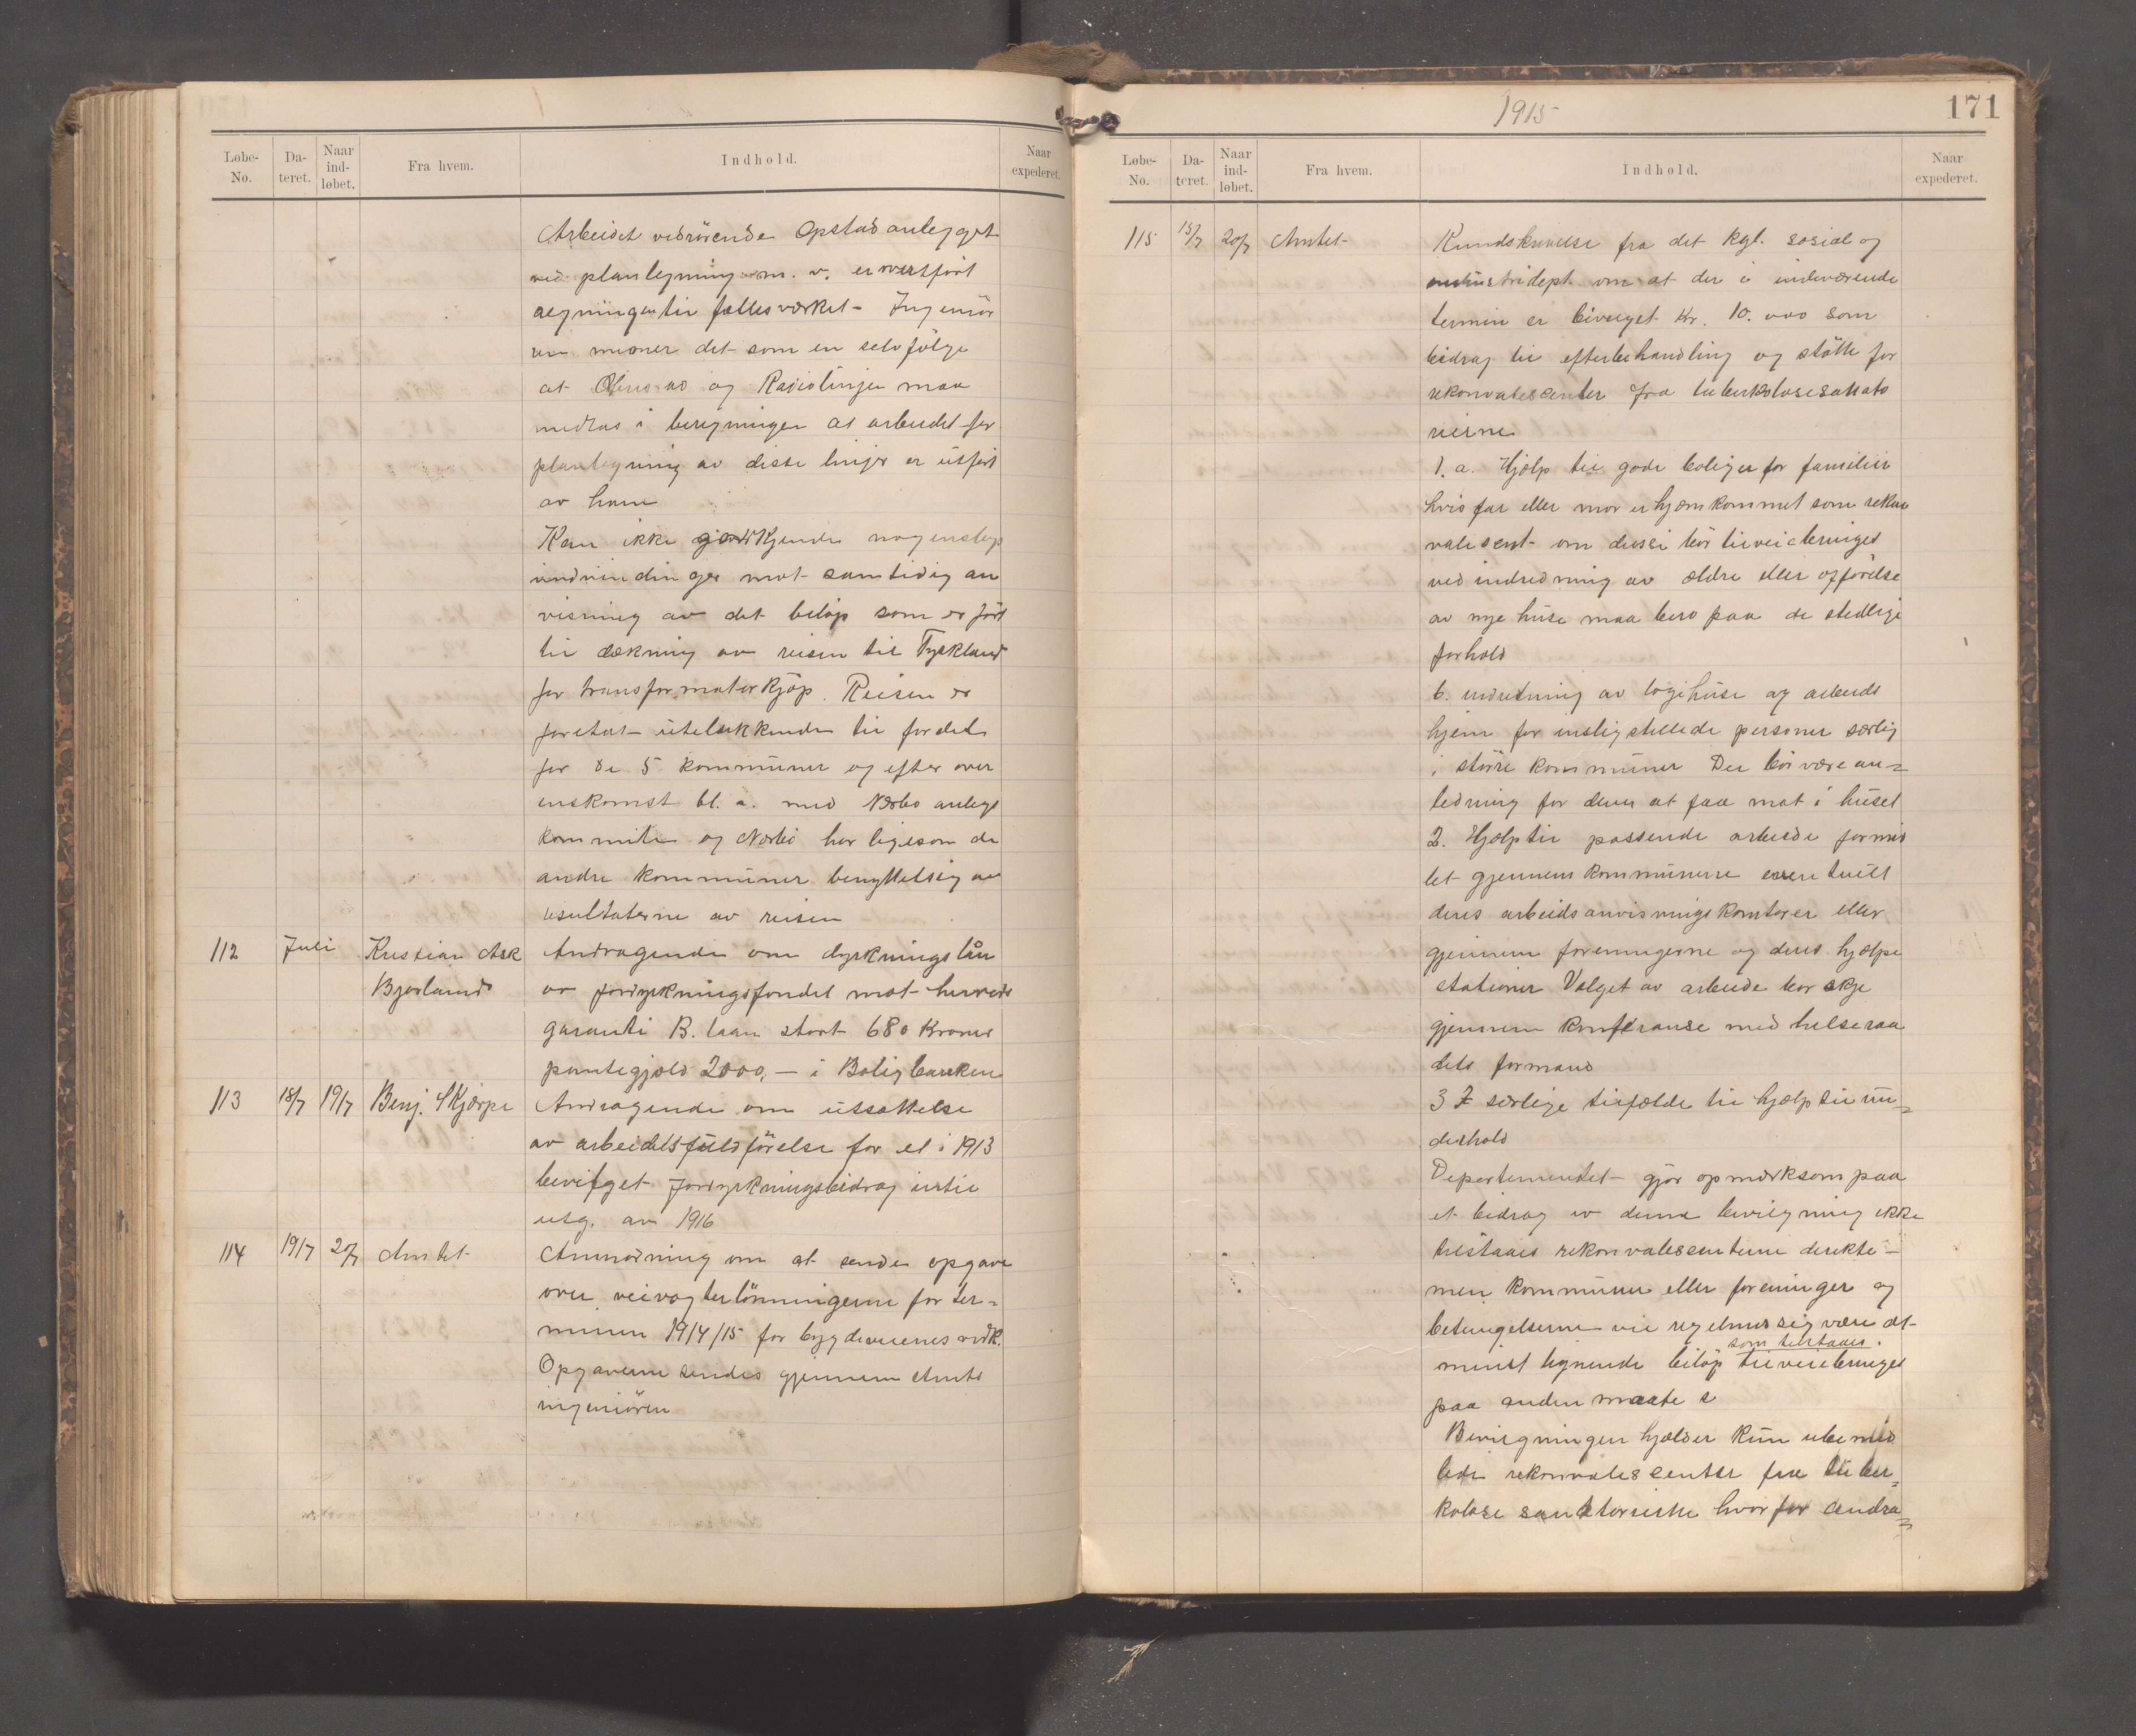 Løbe-No.
Da-teret.
Naar ind-løbet.
Fra hvem.
Indhold.
Naar expederet.
Arbeidet vedrörende Opstad anlegget
ved planlegning m. v. er overfört
regningen til fællesverket - Ingeniör
en mener det som en selvfölge
at og Radiolinjen maa
medtas i beregningen at arbeidet for
planlegning av disse linjer er utfört
av ham
Kan ikke godkjende nogensteds
indvindinger mot samtidig an
visning av det belöp som er fört
til dækning av reisen til Tyskland
for transformatorkjöp. Reisen er
foretat utelukkende til fordel
for de 5 kommuner og efter over
enskomst bl. a. med Nærbö anlegs
kommite og Nærbö har ligesom de
andre kommuner benyttet sig av
resultaterne av reisen
112 Juli Kristian Ask Andragende om dyrkningslån
Bjorland av jorddyrkningsfondet mot herreds
garanti B. laan stort 680 Kroner
pantegjæld 2000,- i Boligbanken
113 18/7 19/7 Benj. Skjærpe Andragende om utsættelse
av arbeidets fuldförelse for et i 1913
bevilget jorddyrkningsbidrag indtil
utg. av 1916
114 19/7 20/7 Amtet Anmodning om at sende opgave
over veivogterlönningerne for ter-
minen 1914/15 for bygdeveienes vedk.
Opgaverne sendes gjennem Amts
ingeniören
1915
171
Løbe-No.
Da-teret.
Naar ind-løbet.
Fra hvem.
Indhold.
Naar expederet.
115 15/7 20/7 Amtet Kundskrivelse fra det kgl. sosial og
industridept. om at der i indeværende
termin er bevilget Kr. 10.000 som
bidrag til efterbehandling og stötte for
rekonvalescenter fra tuberkolosesanato
rierne
1. a. Hjælp til gode boliger for familier
hvis far eller mor er hjemkommet som rekon
valesent om disse bör tilveiebringes
ved indredning av ældre eller opförelse
av nye huse maa bero paa de stedlige
forhold
b. indretning av logihuse og arbeids
hjem for enslig stillede personer særlig
i större kommuner Der bör være an=
ledning for dem at faa mat i huset
2. Hjælp til passende arbeide formid
let gjennem kommunerne eventuelt
deres arbeidsanvisningskontorer eller
gjennem foreningerne og deres hjælpe
stationer Valget av arbeide bör skje
gjennem konferanse med helseraa
dets formand
3 I særlige tilfælde til hjælp til un=
derhold
Departementet gjör opmerksom paa
et bidrag av denne bevilgning ikke
tilstaaes rekonvalescenterne direkte -
men kommuner eller foreninger og
betingelserne vil regelmessig være at
som tilstaaes
minst lignende belöp tilveiebringes
paa anden maate
Bevilgningen gjælder kun ubemid
lede rekonvalescenter fra tuber=
kolose sanatorierne hvorfor andra=